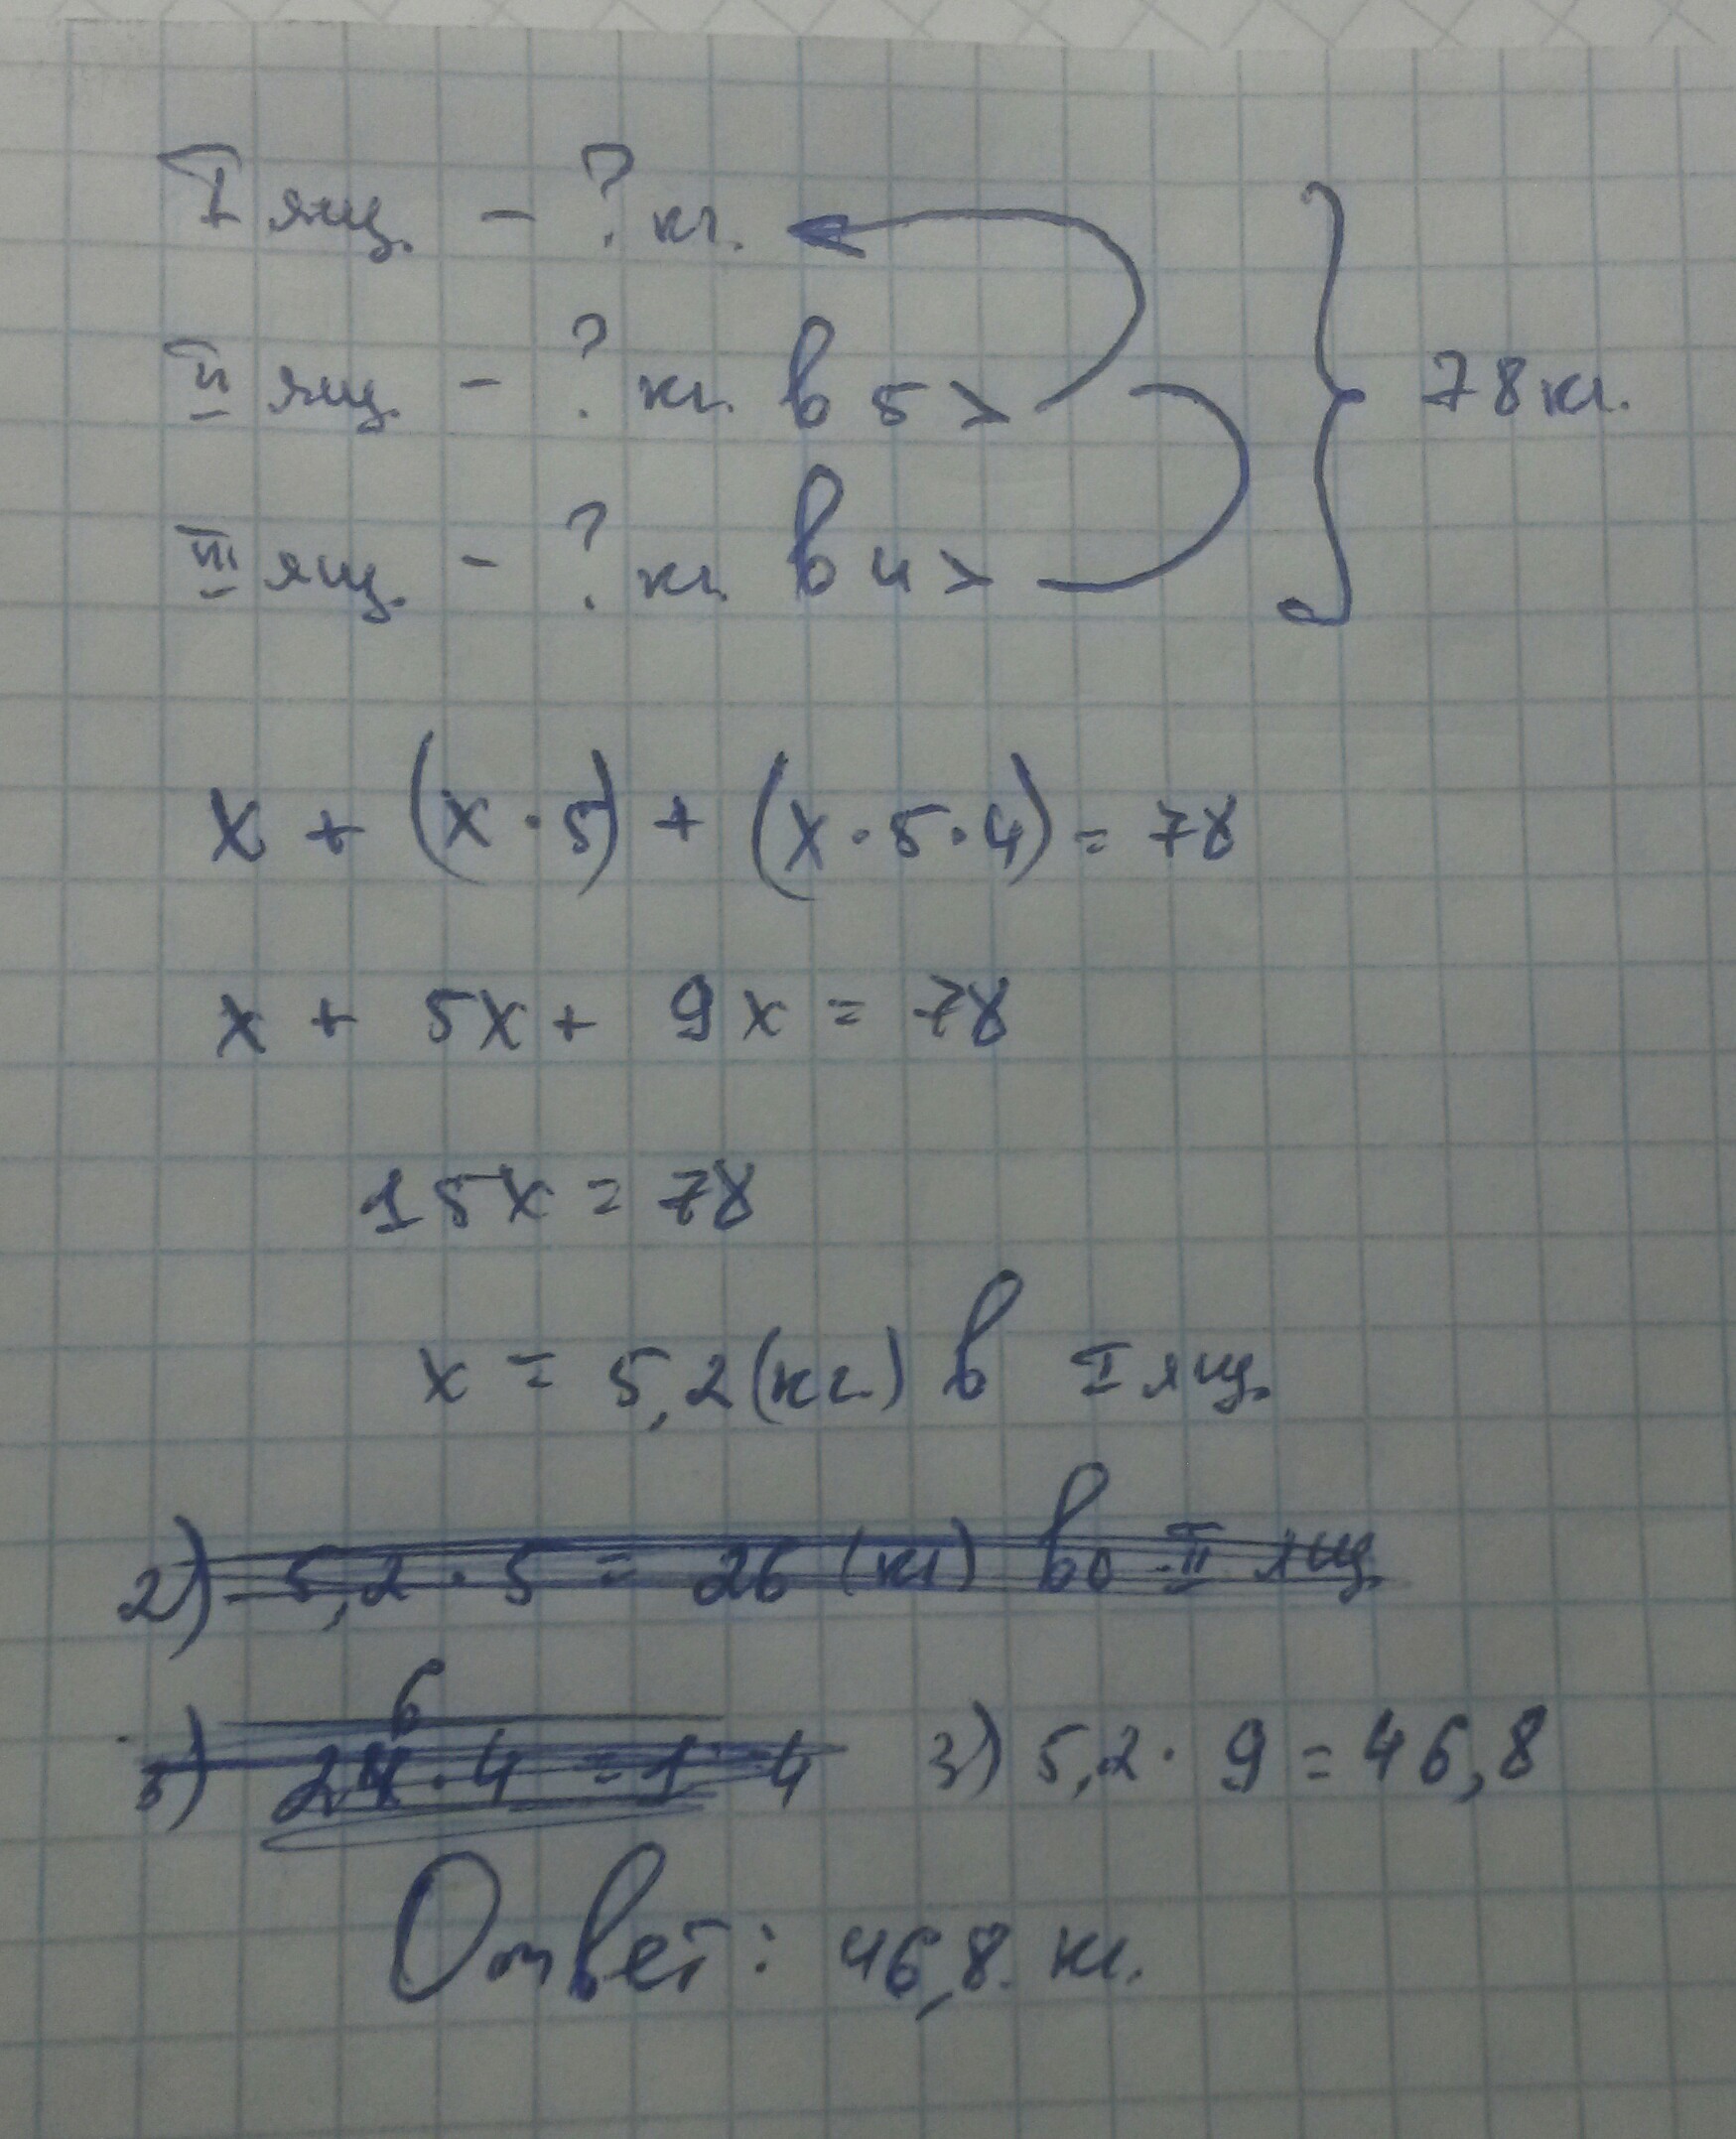 I ящ. - ? кг.
II ящ. - ? кг. в 5 >
III ящ. - ? кг. в 4 >
78 кг.
x + (x · 5) + (x · 5 · 4) = 78
x + 5x + 9x = 78
15x = 78
x = 5,2 (кг.) в I ящ.
2) 5,2 · 5 = 26 (кг) во II ящ.
6
3) 5,2 · 9 = 46,8
Ответ: 46,8 кг.